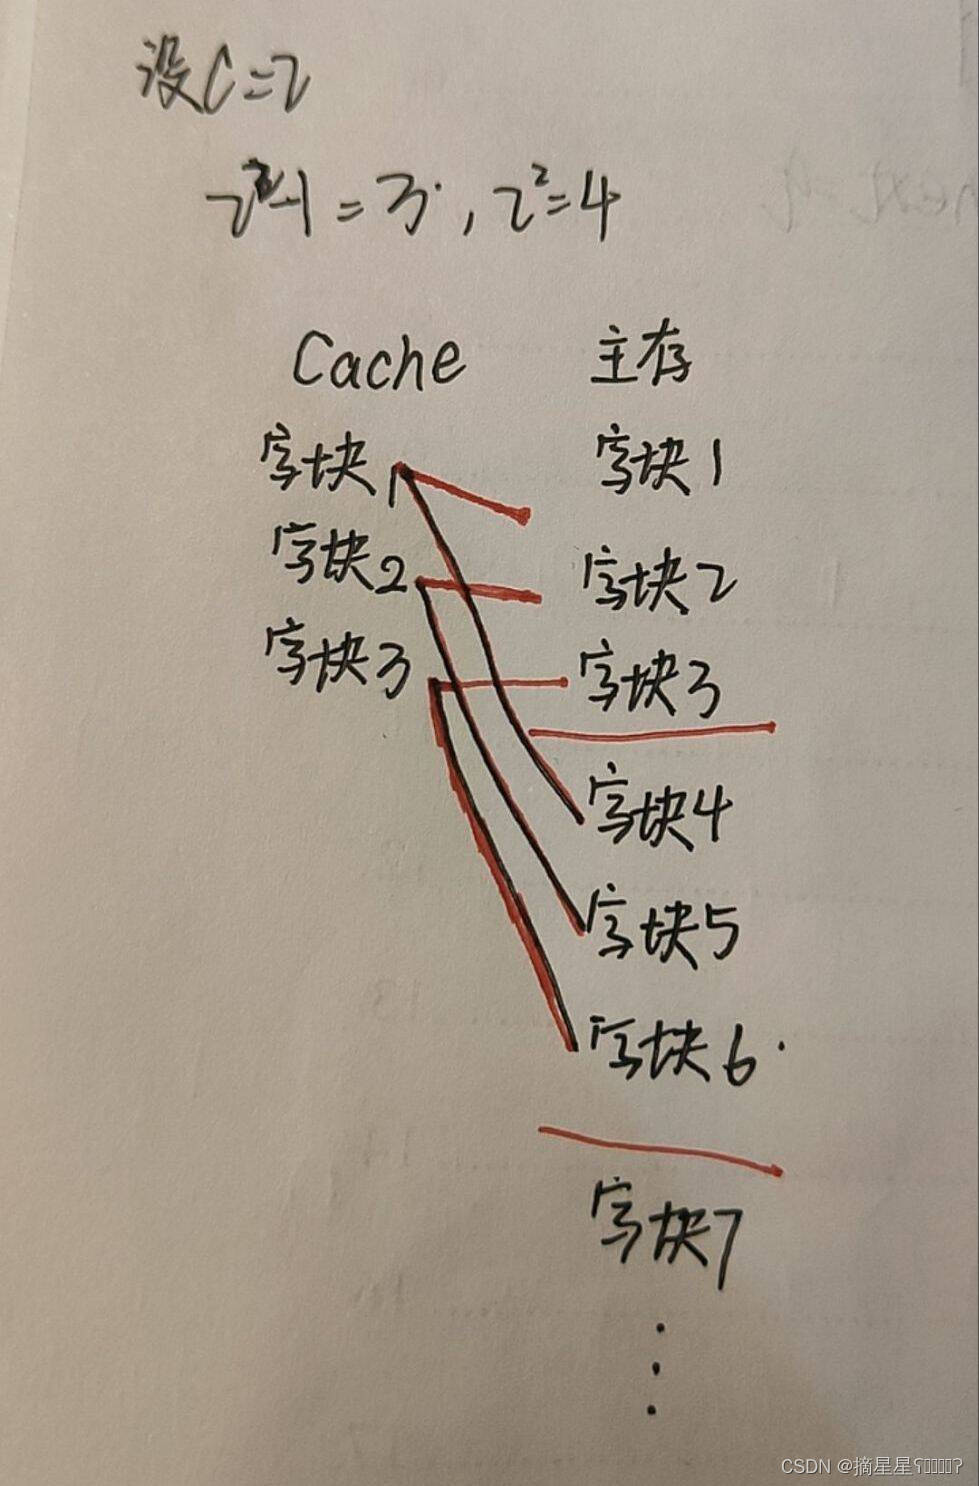 设C=2
2²-1=3，2²=4
Cache 主存
字块1 字块1
字块2 字块2
字块3 字块3
字块4
字块5
字块6
字块7
CSDN @摘星星